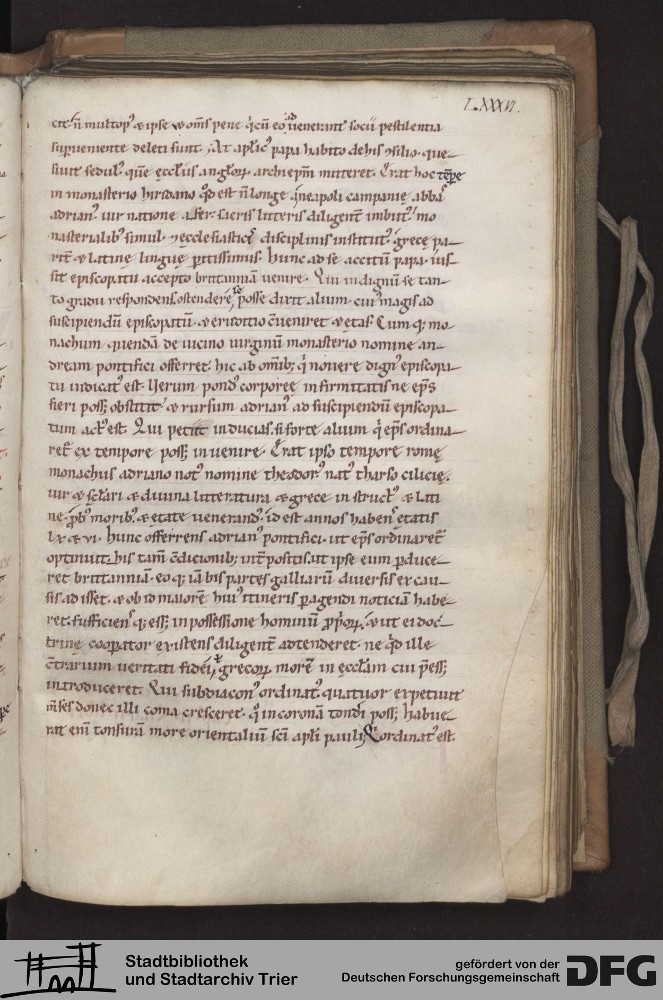 L.XXXVI.
cit᷒ n̄ multop᷒ & ipse & om̄s pene q̇ cū eo aduenerant socii pestilentia
superueniente deleti sunt. At aplic᷒ papa habito de his ↄsilio. que
siuit sedul᷒ quē ęcclīis anglorꝝ archiepm̄ mitteret. Erat hoc tēpr̄e
in monasterio hirsdano qd̄ est n̄ longe a neapoli campanię abba᷒
adrian᷒ uir natione afer. sacris litteris diligent̄ imbut᷒. mo
nasterialib᷒ simul. ⁊ ecclesiastic̨ disciplinis institut᷒. grecę pa
rit̄. & latinę linguę peritissimus. Hunc ad se accitū papa. iussit
sit episcopatu accepto brittanniā uenire. Qui indignū se tan
to gradu respondens. ostendere se posse dixit alium. cui᷒ magis ad
suscipiendū episcopatū. & eruditio c̄ueniret & etas. Cumq; mo
nachum quendā de uicino uirginū monasterio nomine an
dream pontifici offerret. hic ab omīb; q̇ nouere dign᷒ episcopa
tu iudicat᷒ est. Uerum pond᷒ corporeę infirmitatis ne ep̄s
fieri poss; obstitit. & rursum adrian᷒ ad suscipiendū episcopa
tum act᷒ est. Qui petiit inducias. si forte alium q̇ ep̄s ordina
ret̄ ex tempore poss; inuenire. Erat ipso tempore romę
monachus adriano not᷒ nomine theodor᷒ nat᷒ tharso cilicię.
uir & sclari & diuina litteratura & grece instruct᷒ & lati
ne. ꝓb᷒ morib᷒. & ętate uenerand᷒. id est annos habens ętatis
lx & vi. Hunc offerrens adrian᷒ pontifici. ut ep̄s ordinaret̄
optinuit. his tam̄ c̄dicionib; int̄positis. ut ipse eum ꝑduce
ret brittanniā. eo q; iā bis partes galliarū diuersis ex cau
sis adisset. & ob id maiorē hui᷒ itineris ꝑagendi noticiā habe
ret. sufficiens q; ess; in possessione hominū ꝓp̄orꝝ. & ut ei doc
trinę cooperator existens diligent̄ adtenderet. ne qd̄ ille
c̄trarium ueritati fidei, grecorꝝ morē in ęccl̄am cui p̄ess;
introduceret. Qui subdiacon᷒ ordinat᷒ quatuor expetiuit
m̄ses donec illi coma cresceret. q̊ in coronā tonderi poss;. habue
rat enī tonsurā more orientaliū sc̄i apl̄i pauli. Q ordinat᷒ est
Stadtbibliothek
und Stadtarchiv Trier
gefördert von der
Deutschen Forschungsgemeinschaft
DFG